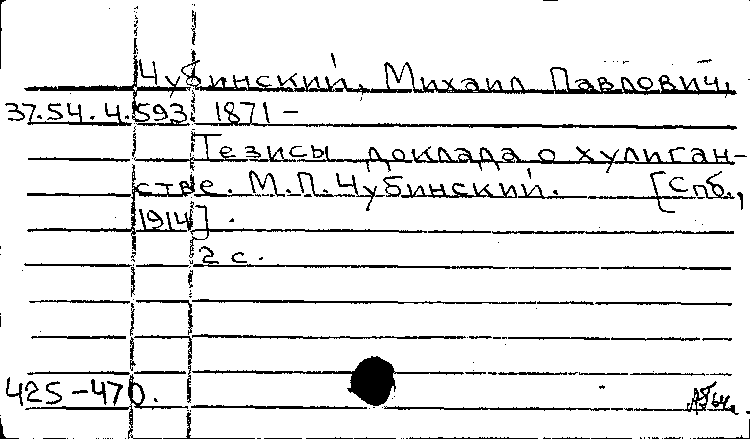 Чубинский, Михаил Павлович,
37.54.4.593. 1871 –
Тезисы доклада о хулиган-
стве. М.П.Чубинский. [Спб.,
1914].
2 с.
425-470.